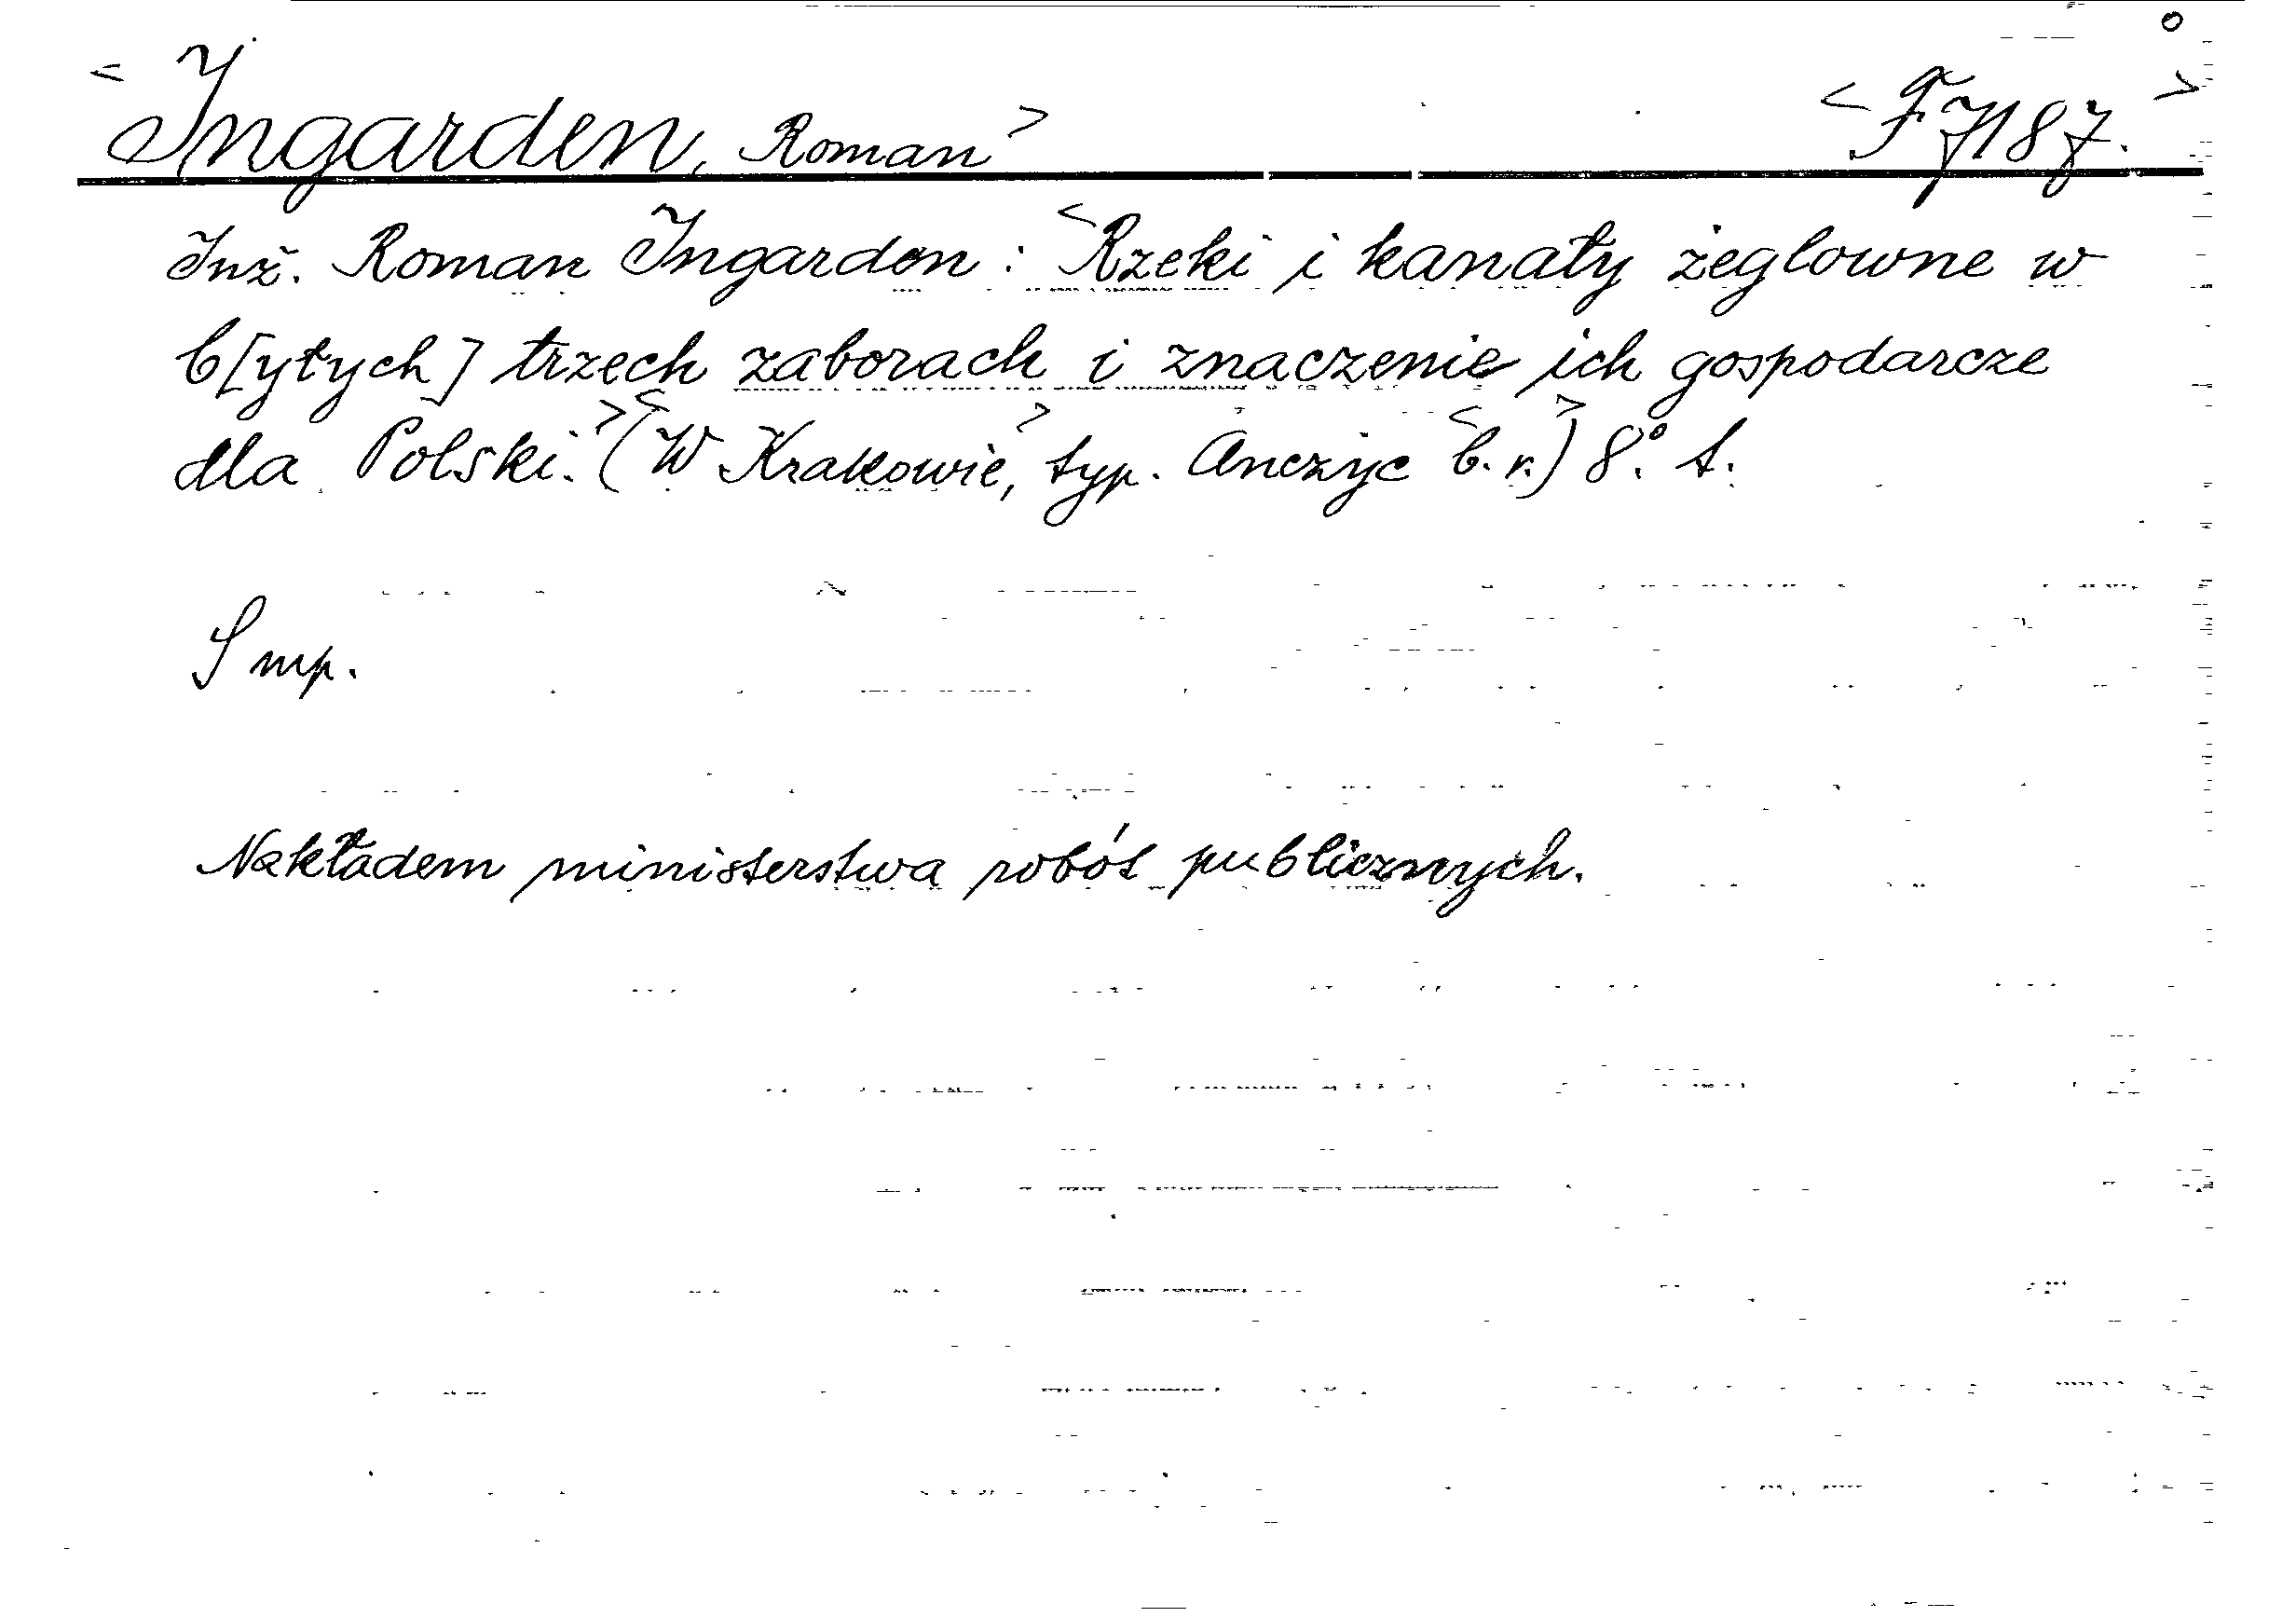 <Ingarden, Roman> <F 7187.>
Inż. Roman Ingarden: <Rzeki i kanały żeglowne w
b[yłych] trzech zaborach i znaczenie ich gospodarcze
dla Polski.> (<W Krakowie,> typ. Anczyc <b. r.>) 8.° t.
S mp.
Nakładem ministerstwa robót publicznych.